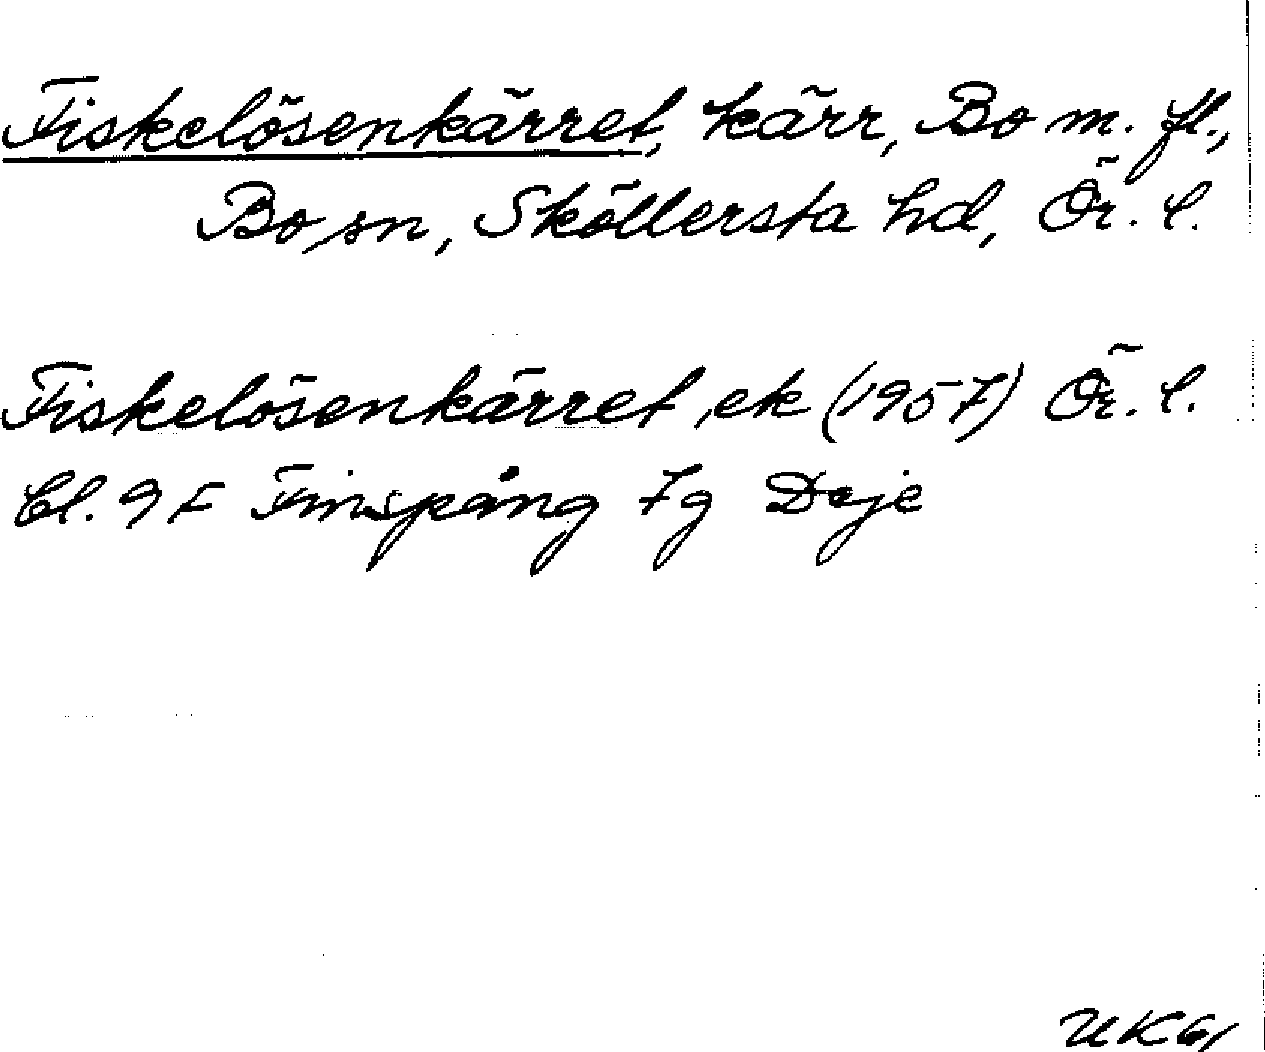 Fiskelösenkärret, kärr, Bo m. fl.,
Bo sn, Sköllersta hd, Ör. l.
Fiskelösenkärret, ek (1957) Ör. l.
bl. 9 F Finspång 7g Deje